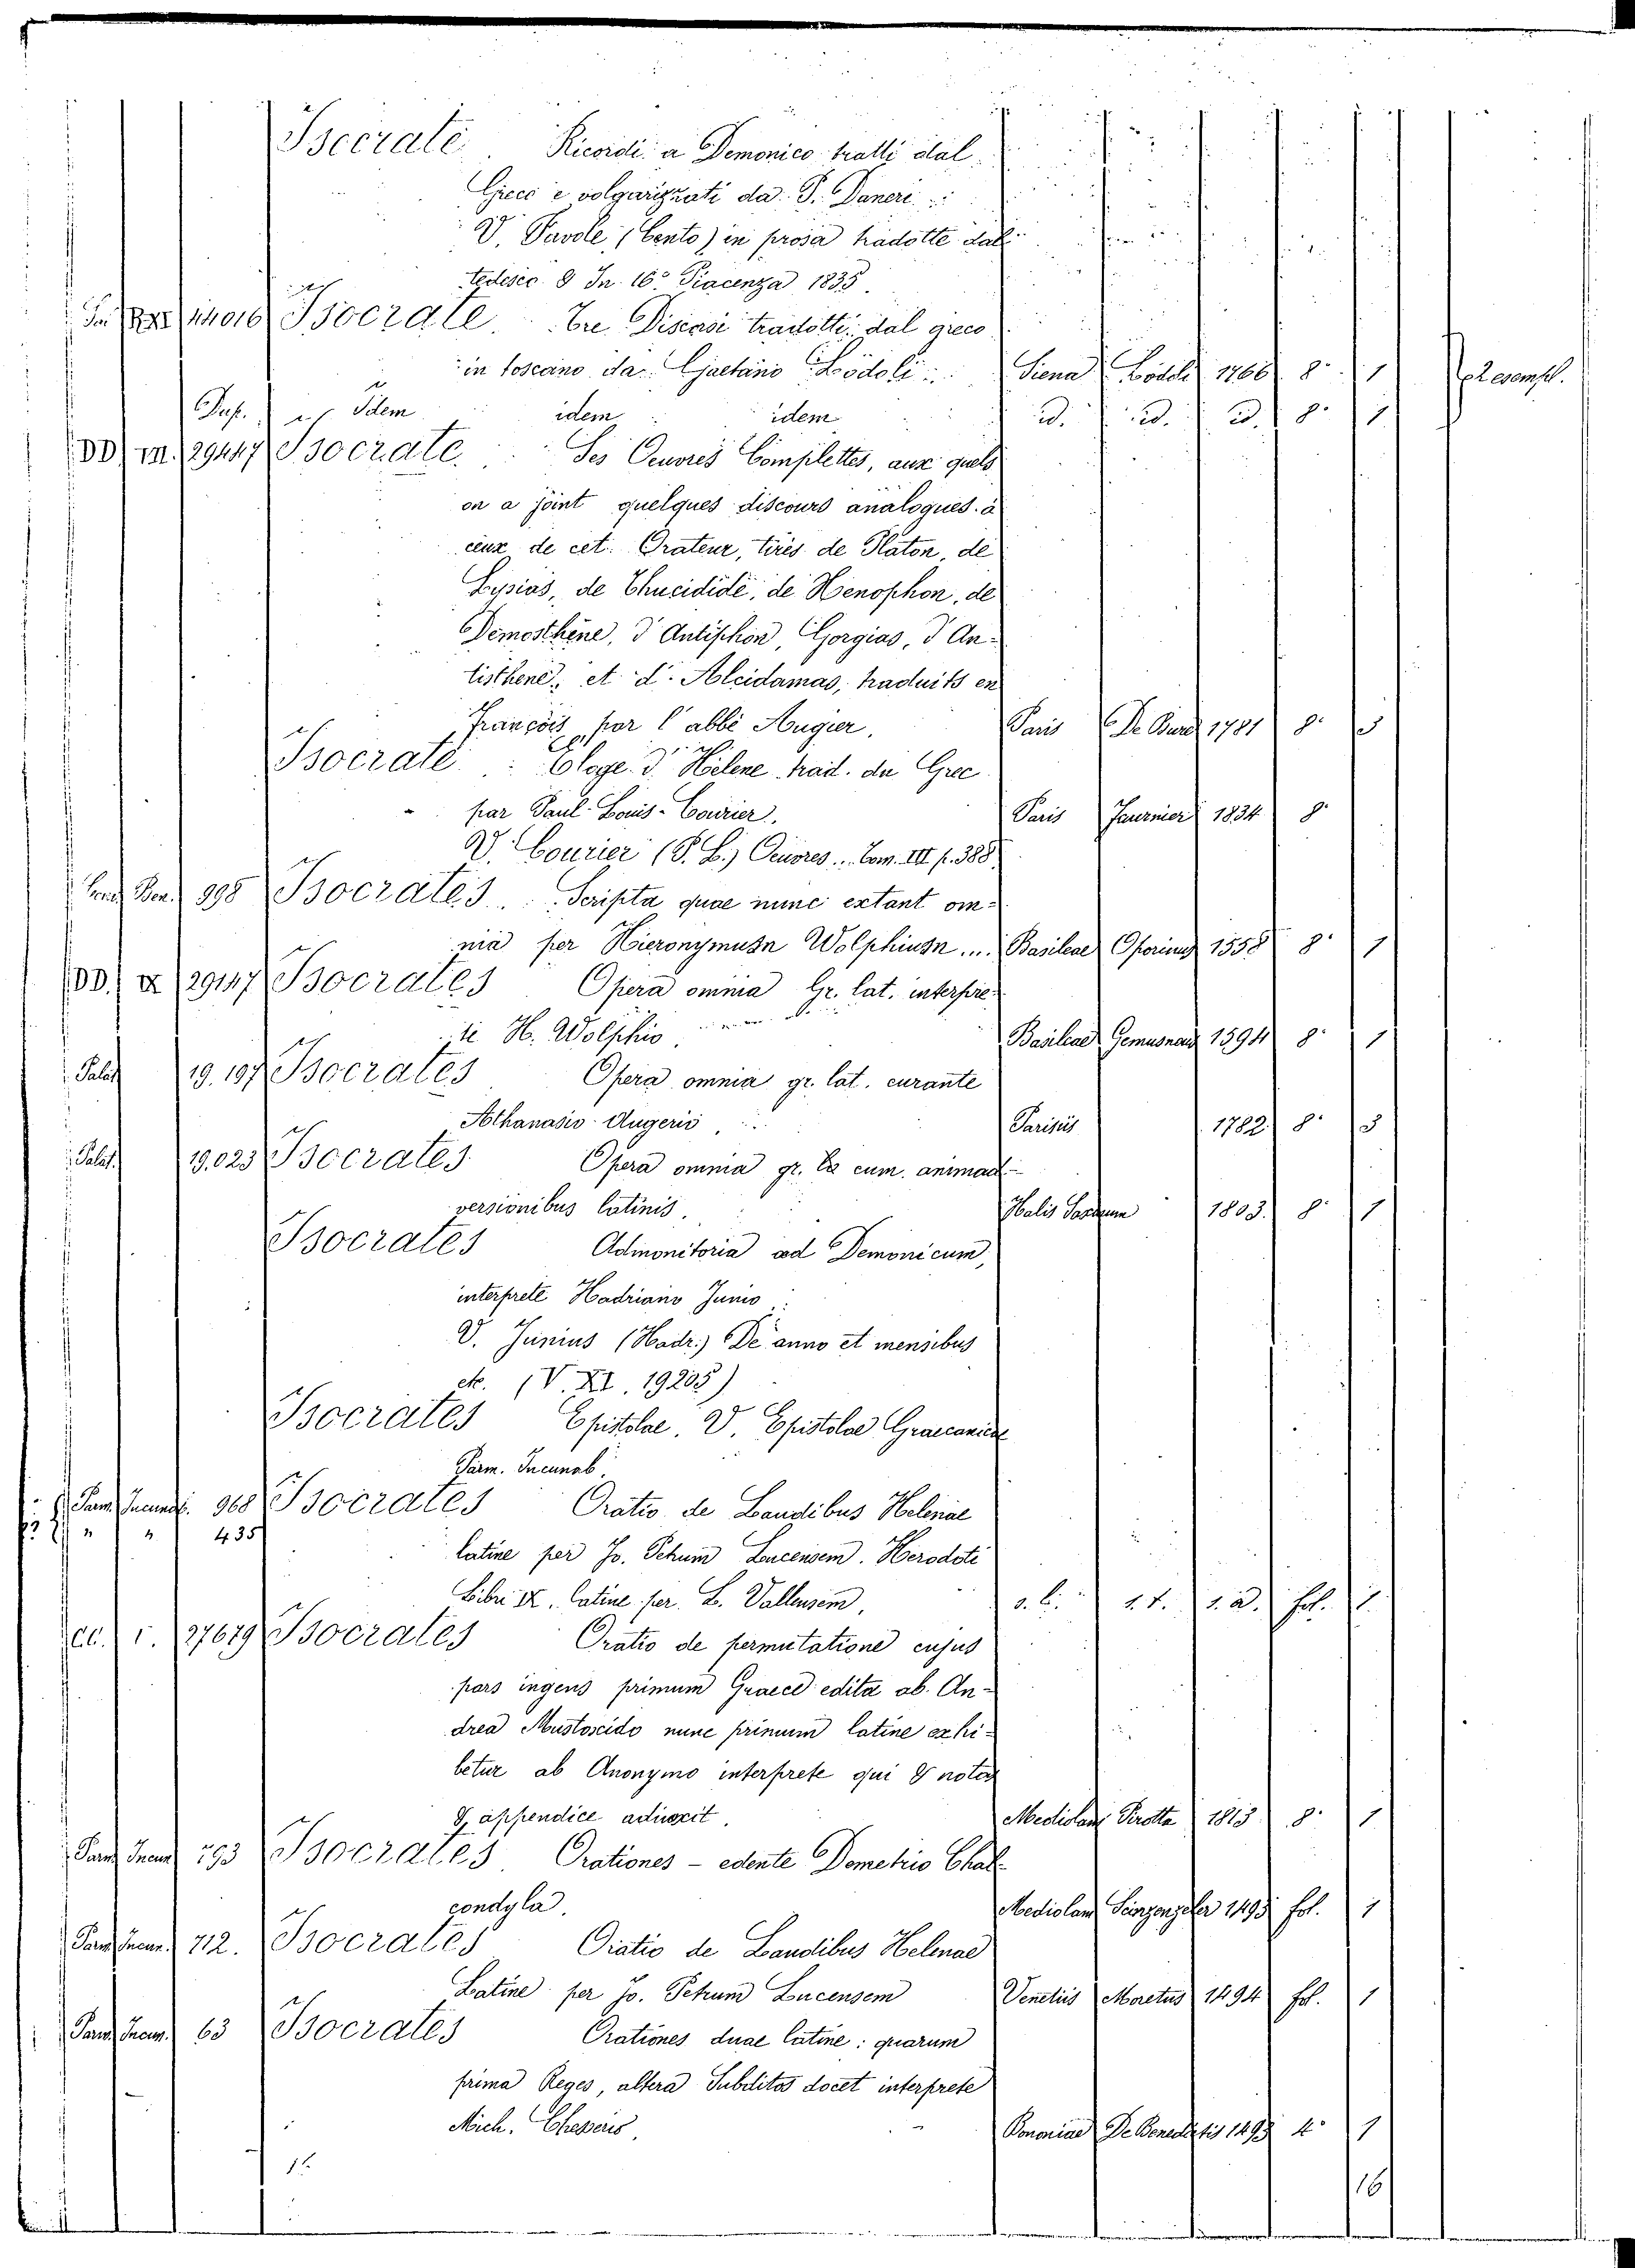 Isocrate. Ricordi a Demonico tratti dal
Greco e volgarizzati da P. Daneri
V. Favole (Cento) in prosa tradotte dal
tedesco & In 16.° Piacenza 1835.
14016 Isocrate. Tre Discorsi tradotti dal greco
in toscano da Gaetano Lödoli Siena 1766 8° 1 2 esempl.
Dup. Idem idem idem id. id. id. 8° 1
DD VII. 29447 Isocrate. Ses Oeuvres Complettes, aux quels
on a joint quelques discours analogues à
ceux de cet Orateur, tirés de Platon, de
Lysias, de Thucidide, de Xenophon, de
Démosthène, d'Antiphon, Gorgias, d'An-
tisthene, et d'Alcidamas, traduits en
François par l'abbé Augier. Paris De Bure 1781 8° 3
Isocrate. Eloge d'Hélene trad. du Grec
par Paul-Louis-Courier. Paris 1834 8°
V. Courier (P. L.) Oeuvres.. Tom. III p. 388
998 Isocrates. Scripta quae nunc extant om-
nia per Hieronymum Wolphium ... Basileae Oporinus 1558 8° 1
DD. X 29147 Isocrates Opera omnia Gr. lat. interpre-
te H. Wolphio. Basileae 1594 8° 1
Palat. 19.197 Isocrates Opera omnia gr. lat. curante
Athanasio Augerio. Parisiis 1782. 8° 3
Palat. 19.023 Isocrates Opera omnia gr. Ea cum animad-
versionibus latinis. Halis Saxonum 1803. 8° 1
Isocrates Admonitoria ad Demonicum,
interprete Hadriano Junio.
V. Junius (Hadr.) De anno et mensibus
etc. (V. XI. 19205)
Isocrates Epistolae. V. Epistolae Graecanicae
Parm. Incunab.
Parm. Incunab. 968 Isocrates Oratio de Laudibus Helenae
" " 435
latine per Jo. Petrum Lucensem. Herodoti
Libri IX. latine per L. Vallensem. s. l. s. t. s. a. fol. 1.
CC. I. 27679 Isocrates Oratio de permutatione cujus
pars ingens primum Graece edita ab An-
drea Mustoxido nunc primum latine exhi-
betur ab Anonymo interprete qui & notas
& appendice adiunxit. Mediolani Pirotta 1813 8° 1
Parm. Incun. 793 Isocrates. Orationes - edente Demetrio Chal-
condyla. Mediolani Scinzenzeler 1493 fol. 1
Parm. Incun. 712. Isocrates Oratio de Laudibus Helenae
Latine per Jo. Petrum Lucensem Venetiis Moretus 1494 fol. 1
Parm. Incun. 63 Isocrates Orationes duae latine: quarum
prima Reges, altera Subditos docet interprete
Mich. Bononiae De Benedictis 1493 4° 1
16